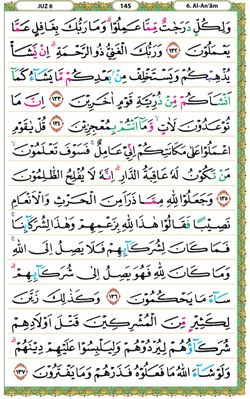 JUZ 8 145 6. Al-An'ām
وَلِكُلٍّ دَرَجَٰتٌ مِّمَّا عَمِلُوا۟ ۚ وَمَا رَبُّكَ بِغَٰفِلٍ عَمَّا
يَعْمَلُونَ ١٣٢ وَرَبُّكَ الْغَنِىُّ ذُو الرَّحْمَةِ ۚ إِن يَشَأْ
يُذْهِبْكُمْ وَيَسْتَخْلِفْ مِنۢ بَعْدِكُم مَّا يَشَآءُ كَمَآ
أَنشَأَكُم مِّن ذُرِّيَّةِ قَوْمٍ ءَاخَرِينَ ١٣٣ إِنَّ مَا
تُوعَدُونَ لَءَاتٍ ۖ وَمَآ أَنتُم بِمُعْجِزِينَ ١٣٤ قُلْ يَٰقَوْمِ
اعْمَلُوا۟ عَلَىٰ مَكَانَتِكُمْ إِنِّى عَامِلٌ ۖ فَسَوْفَ تَعْلَمُونَ
مَن تَكُونُ لَهُۥ عَٰقِبَةُ الدَّارِ ۗ إِنَّهُۥ لَا يُفْلِحُ الظَّٰلِمُونَ
١٣٥ وَجَعَلُوا۟ لِلَّهِ مِمَّا ذَرَأَ مِنَ الْحَرْثِ وَالْأَنْعَٰمِ
نَصِيبًا فَقَالُوا۟ هَٰذَا لِلَّهِ بِزَعْمِهِمْ وَهَٰذَا لِشُرَكَآئِنَا ۖ
فَمَا كَانَ لِشُرَكَآئِهِمْ فَلَا يَصِلُ إِلَى اللَّهِ ۖ
وَمَا كَانَ لِلَّهِ فَهُوَ يَصِلُ إِلَىٰ شُرَكَآئِهِمْ ۗ
سَآءَ مَا يَحْكُمُونَ ١٣٦ وَكَذَٰلِكَ زَيَّنَ
لِكَثِيرٍ مِّنَ الْمُشْرِكِينَ قَتْلَ أَوْلَٰدِهِمْ
شُرَكَآؤُهُمْ لِيُرْدُوهُمْ وَلِيَلْبِسُوا۟ عَلَيْهِمْ دِينَهُمْ ۖ
وَلَوْ شَآءَ اللَّهُ مَا فَعَلُوهُ ۖ فَذَرْهُمْ وَمَا يَفْتَرُونَ ١٣٧